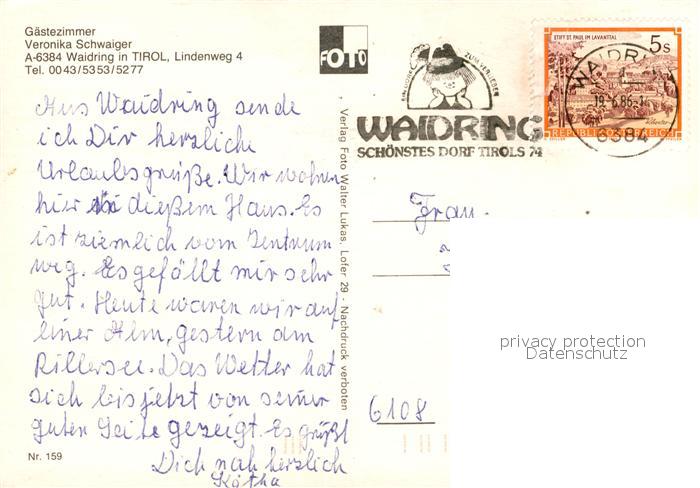 Gästezimmer
Veronika Schwaiger
A-6384 Waidring in TIROL, Lindenweg 4
Tel. 0043/5353/5277
Aus Waidring sende
ich Dir herzliche
Urlaubsgrüße. Wir wohnen
hier in dießem Haus. Es
ist ziemlich vom Zentrum
weg. Es gefällt mir sehr
gut. Heute waren wir auf
einer Alm, gestern am
Pillersee. Das Wetter hat
sich bis jetzt von seiner
guten Seite gezeigt. Es grüßt
Dich nah herzlich
Nr. 159
Verlag Foto Walter Lukas, Lofer 29 · Nachdruck verboten
FOTO
ZUM VERLIEBEN
WAIDRING
SCHÖNSTES DORF TIROLS 74
STIFT ST. PAUL IM LAVANTTAL
5s
REPUBLIK ÖSTERREICH
WAIDRING
19.6.86
6384
Frau
6108
privacy protection
Datenschutz